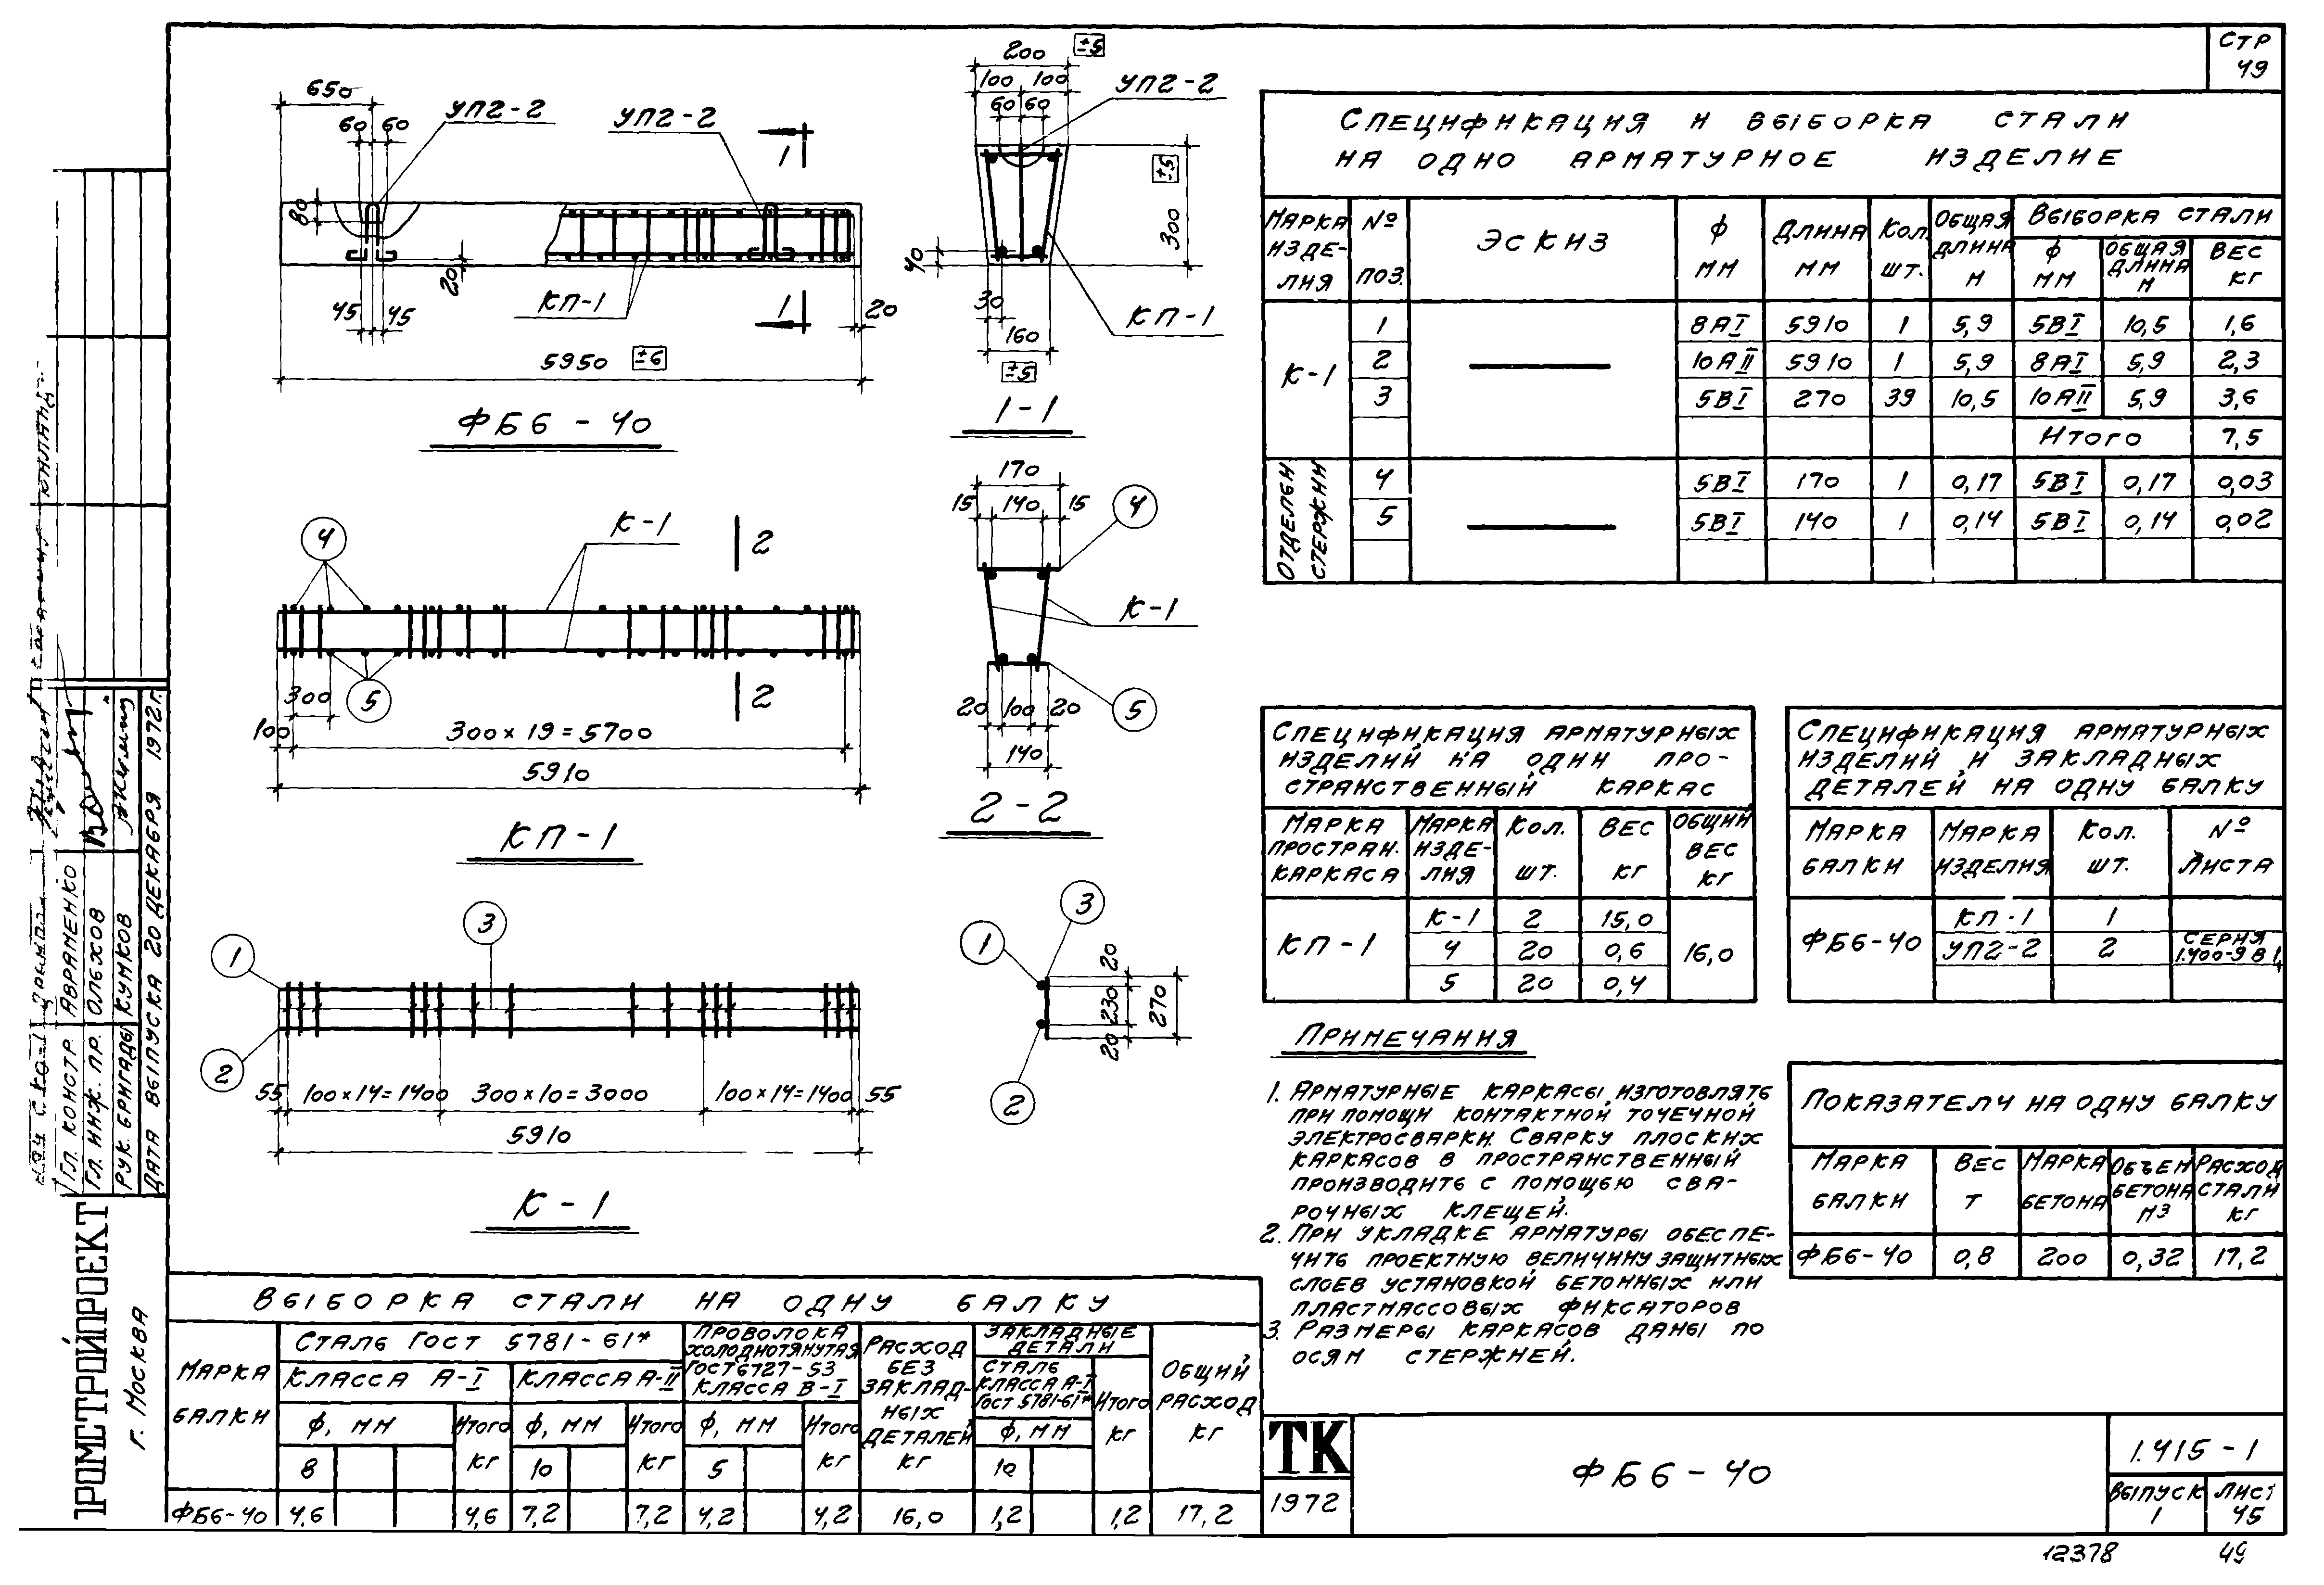 СТР
49
650
60 60
УП2-2
УП2-2
1
80
20
45 45
КП-1
1
20
5950 ±6
ФБ6-40
200 ±5
100 100
60 60
УП2-2
±5
300
40
30
160
±5
КП-1
1-1
4
К-1
2
300
5
2
100
300×19=5700
5910
КП-1
170
15 140 15
4
К-1
20 100 20
140
5
2-2
1
3
2
55 100×14=1400 300×10=3000 100×14=1400 55
5910
К-1
3
1
20
230
270
20
2
СПЕЦИФИКАЦИЯ И ВЫБОРКА СТАЛИ
НА ОДНО АРМАТУРНОЕ ИЗДЕЛИЕ
МАРКА ИЗДЕ-ЛИЯ №ПОЗ. ЭСКИЗ Ф ММ ДЛИНА ММ КОЛ. ШТ. ОБЩАЯ ДЛИНА М ВЫБОРКА СТАЛИ
Ф ММ ОБЩАЯ ДЛИНА М ВЕС КГ
К-1 1 8АI 5910 1 5,9 5ВI 10,5 1,6
2 10АII 5910 1 5,9 8АI 5,9 2,3
3 5ВI 270 39 10,5 10АII 5,9 3,6
ИТОГО 7,5
ОТДЕЛЬН СТЕРЖНИ 4 5ВI 170 1 0,17 5ВI 0,17 0,03
5 5ВI 140 1 0,14 5ВI 0,14 0,02
СПЕЦИФИКАЦИЯ АРМАТУРНЫХ
ИЗДЕЛИЙ НА ОДИН ПРО-
СТРАНСТВЕННЫЙ КАРКАС
МАРКА ПРОСТРАН. КАРКАСА МАРКА ИЗДЕ-ЛИЯ КОЛ. ШТ. ВЕС КГ ОБЩИЙ ВЕС КГ
КП-1 К-1 2 15,0 16,0
4 20 0,6
5 20 0,4
СПЕЦИФИКАЦИЯ АРМАТУРНЫХ
ИЗДЕЛИЙ И ЗАКЛАДНЫХ
ДЕТАЛЕЙ НА ОДНУ БАЛКУ
МАРКА БАЛКИ МАРКА ИЗДЕЛИЯ КОЛ. ШТ. № ЛИСТА
ФБ6-40 КП-1 1
УП2-2 2 СЕРИЯ 1.400-9 В 1
ПРИМЕЧАНИЯ
1. АРМАТУРНЫЕ КАРКАСЫ ИЗГОТОВЛЯТЬ
ПРИ ПОМОЩИ КОНТАКТНОЙ ТОЧЕЧНОЙ
ЭЛЕКТРОСВАРКИ. СВАРКУ ПЛОСКИХ
КАРКАСОВ В ПРОСТРАНСТВЕННЫЙ
ПРОИЗВОДИТЬ С ПОМОЩЬЮ СВА-
РОЧНЫХ КЛЕЩЕЙ.
2. ПРИ УКЛАДКЕ АРМАТУРЫ ОБЕСПЕ-
ЧИТЬ ПРОЕКТНУЮ ВЕЛИЧИНУ ЗАЩИТНЫХ
СЛОЕВ УСТАНОВКОЙ БЕТОННЫХ ИЛИ
ПЛАСТМАССОВЫХ ФИКСАТОРОВ
3. РАЗМЕРЫ КАРКАСОВ ДАНЫ ПО
ОСЯМ СТЕРЖНЕЙ.
ПОКАЗАТЕЛИ НА ОДНУ БАЛКУ
МАРКА БАЛКИ ВЕС Т МАРКА БЕТОНА ОБЪЕМ БЕТОНА М3 РАСХОД СТАЛИ КГ
ФБ6-40 0,8 200 0,32 17,2
ВЫБОРКА СТАЛИ НА ОДНУ БАЛКУ
МАРКА БАЛКИ СТАЛЬ ГОСТ 5781-61* ПРОВОЛОКА ХОЛОДНОТЯНУТАЯ ГОСТ 6727-53 КЛАССА В-I РАСХОД БЕЗ ЗАКЛАД-НЫХ ДЕТАЛЕЙ КГ ЗАКЛАДНЫЕ ДЕТАЛИ ОБЩИЙ РАСХОД КГ
КЛАССА А-I КЛАССА А-II СТАЛЬ КЛАССА А-I ГОСТ 5781-61* ИТОГО КГ
Ф, ММ ИТОГО КГ Ф, ММ ИТОГО КГ Ф, ММ ИТОГО КГ Ф, ММ
8 10 5 10
ФБ6-40 4,6 4,6 7,2 7,2 4,2 4,2 16,0 1,2 1,2 17,2
ТК
1972
ФБ6-40
1.415-1
ВЫПУСК 1
ЛИСТ 45
12378 49
ПРОМСТРОЙПРОЕКТ
Г. МОСКВА
ГЛ. КОНСТР. АВРАМЕНКО
ГЛ. ИНЖ. ПР. ОЛЬХОВ
РУК. БРИГАДЫ КУМКОВ
ДАТА ВЫПУСКА 20 ДЕКАБРЯ 1972г.